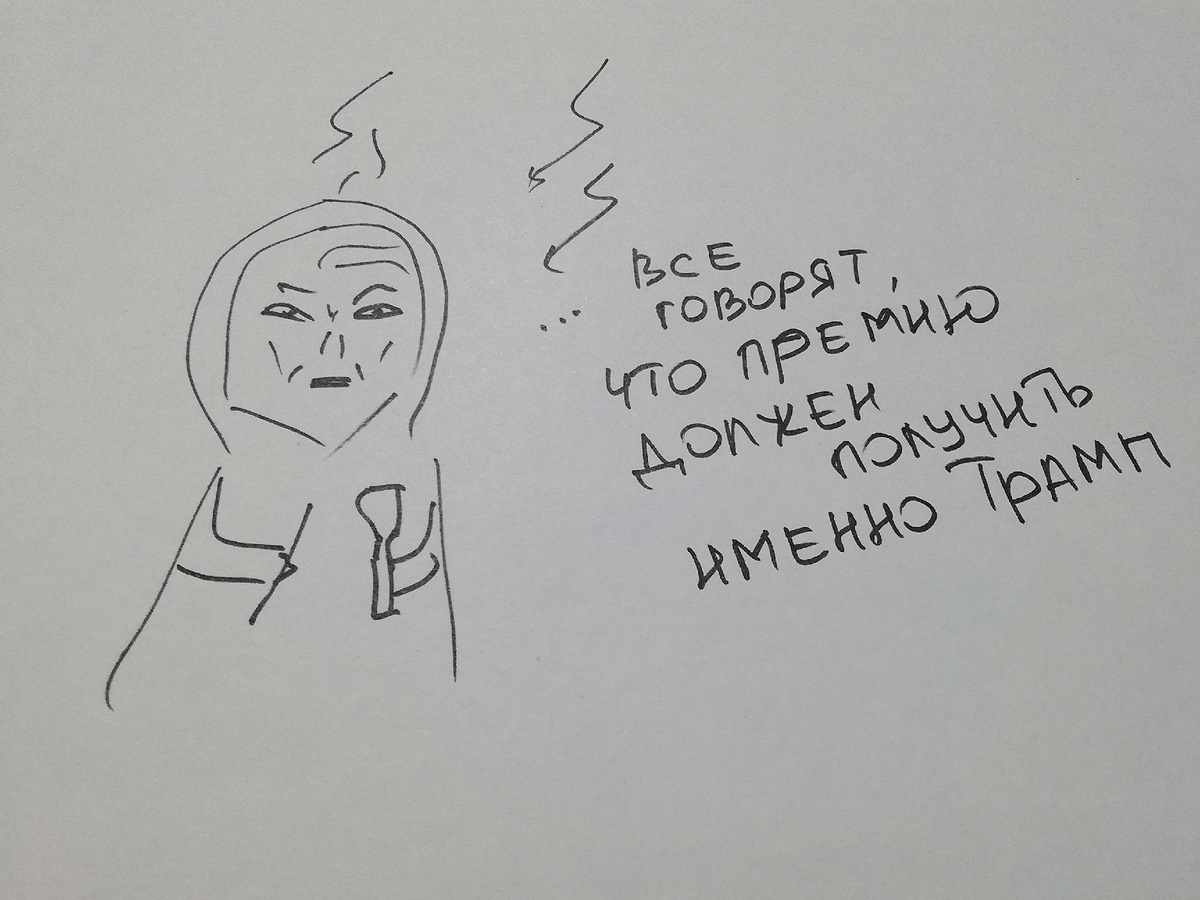 ... ВСЕ
ГОВОРЯТ,
ЧТО ПРЕМИЮ
ДОЛЖЕН
ПОЛУЧИТЬ
ИМЕННО ТРАМП